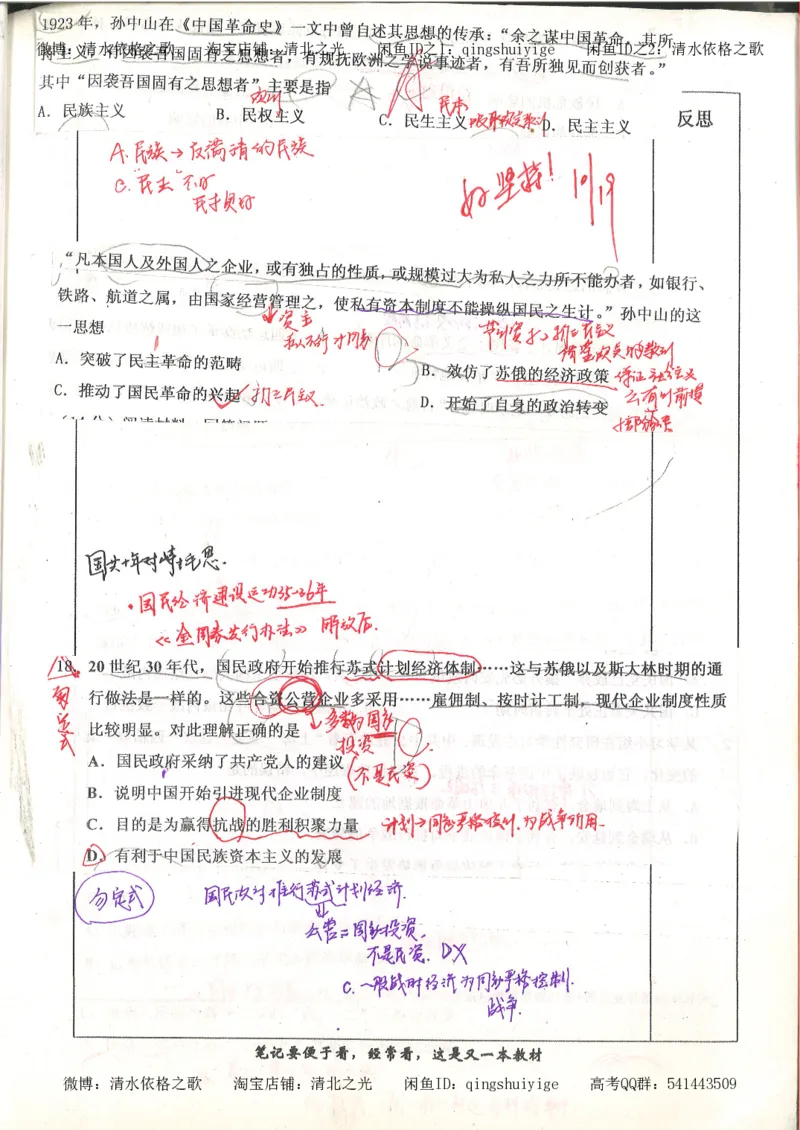 1923年，孙中山在《中国革命史》一文中曾自述其思想的传承：“余之谋中国革命，其所
微博：清水依格之歌 淘宝店铺：清北之光 闲鱼ID之1：qingshuiyige 闲鱼ID之2：清水依格之歌
持主义，有因袭吾国固有之思想者，有规抚欧洲之学说事迹者，有吾所独见而创获者。”
其中“因袭吾国固有之思想者”主要是指
A．民族主义 B．民权主义 C．民生主义 D．民主主义
民本
反思
A.民族→反满清的民族
好坚持！10/19
“凡本国人及外国人之企业，或有独占的性质，或规模过大为私人之力所不能办者，如银行、
铁路、航道之属，由国家经营管理之，使私有资本制度不能操纵国民之生计。”孙中山的这
一思想
A．突破了民主革命的范畴
B．效仿了苏俄的经济政策
C．推动了国民革命的兴起
D．开始了自身的政治转变
国共十年对峙
·国民经济建设运动35-36年
18、20世纪30年代，国民政府开始推行苏式计划经济体制……这与苏俄以及斯太林时期的通
行做法是一样的。这些合资公营企业多采用……雇佣制、按时计工制，现代企业制度性质
比较明显。对此理解正确的是
多数为国家
投资
(不是民资)
A．国民政府采纳了共产党人的建议
B．说明中国开始引进现代企业制度
C．目的是为赢得抗战的胜利积聚力量
D．有利于中国民族资本主义的发展
勿定式
国民政府推行苏式计划经济.
公营=国家投资.
不是民资. D×
C.一般战时经济为国家严格控制.
战争.
笔记要便于看，经常看，这是又一本教材
微博：清水依格之歌 淘宝店铺：清北之光 闲鱼ID：qingshuiyige 高考QQ群：541443509